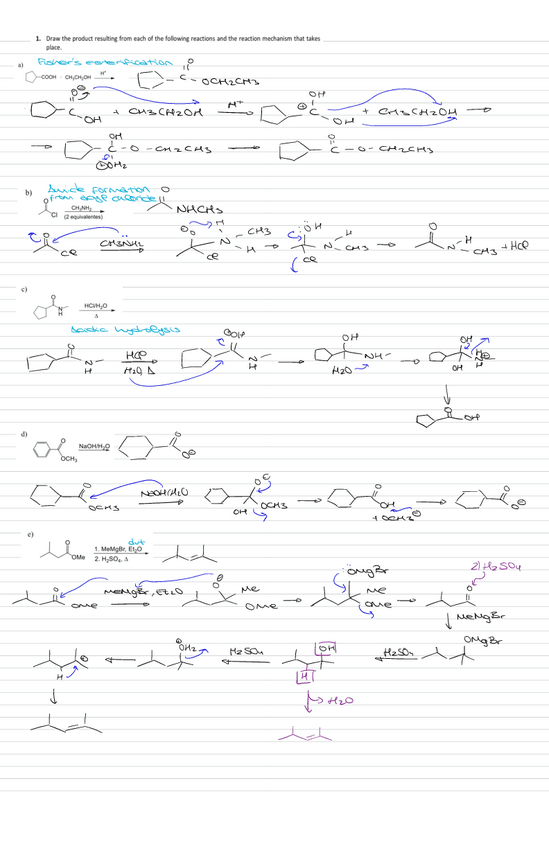 1. Draw the product resulting from each of the following reactions and the reaction mechanism that takes
place.
a) Fisher's esterification
COOH CH3CH2OH H+ C O OCH2CH3
C O OH + CH3CH2OH H+ OH C OH + CH3CH2OH
OH C - O - CH2CH3 OH2 O C - O - CH2CH3
b) Amide formation
from acyl chloride
O Cl CH3NH2 (2 equivalentes) O NHCH3
O Cl CH3NH2 O H N CH3 H Cl OH N H CH3 Cl O N H CH3 + HCl
c)
O N H HCl/H2O Δ
Acidic hydrolysis
O N H HCl H2O Δ OH N H OH NH H2O OH OH H
O OH
d)
O OCH3 NaOH/H2O O O
O OCH3 NaOH/H2O O OH OCH3 O OH + OCH3 O O
e)
O OMe 1. MeMgBr, Et2O 2. H2SO4, Δ
OMgBr 2) H2SO4
O OMe MeMgBr, Et2O O Me OMe Me OMe O
MeMgBr
OMgBr
H OH2 H2SO4 OH H H2SO4
H2O